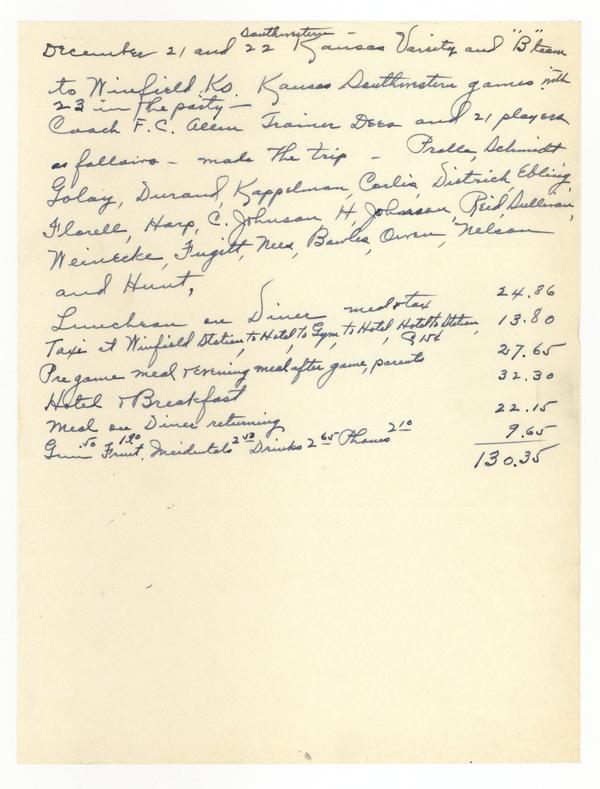 Southwestern -
December 21 and 22 Kansas Varsity and "B" team
to Winfield Ks. Kansas Southwestern games with
23 in the party -
Coach F.C. Allen Trainer Dees and 21 players
as follows - made the trip - Pralle, Schmidt
Golay, Durand, Kappelman, Corlis, Dietrich, Ebling,
Florell, Harp, C. Johnson, H. Johnson, Reid, Sullivan,
Weinecke, Fugitt, Nees, Bowles, Owen, Nelson
and Hunt,
Luncheon on Diner meal & tax 24.86
Taxi at Winfield Station, to Hotel, to Gym, to Hotel, Hotel to Station, @ 15¢ 13.80
Pre game meal & evening meal after game, parents 27.65
Hotel & Breakfast 32.30
Meal on Diner returning 22.15
Gum .50 Fruit 1.90 Incidentals Drinks 2.65 Phones 2.10 9.65
130.35